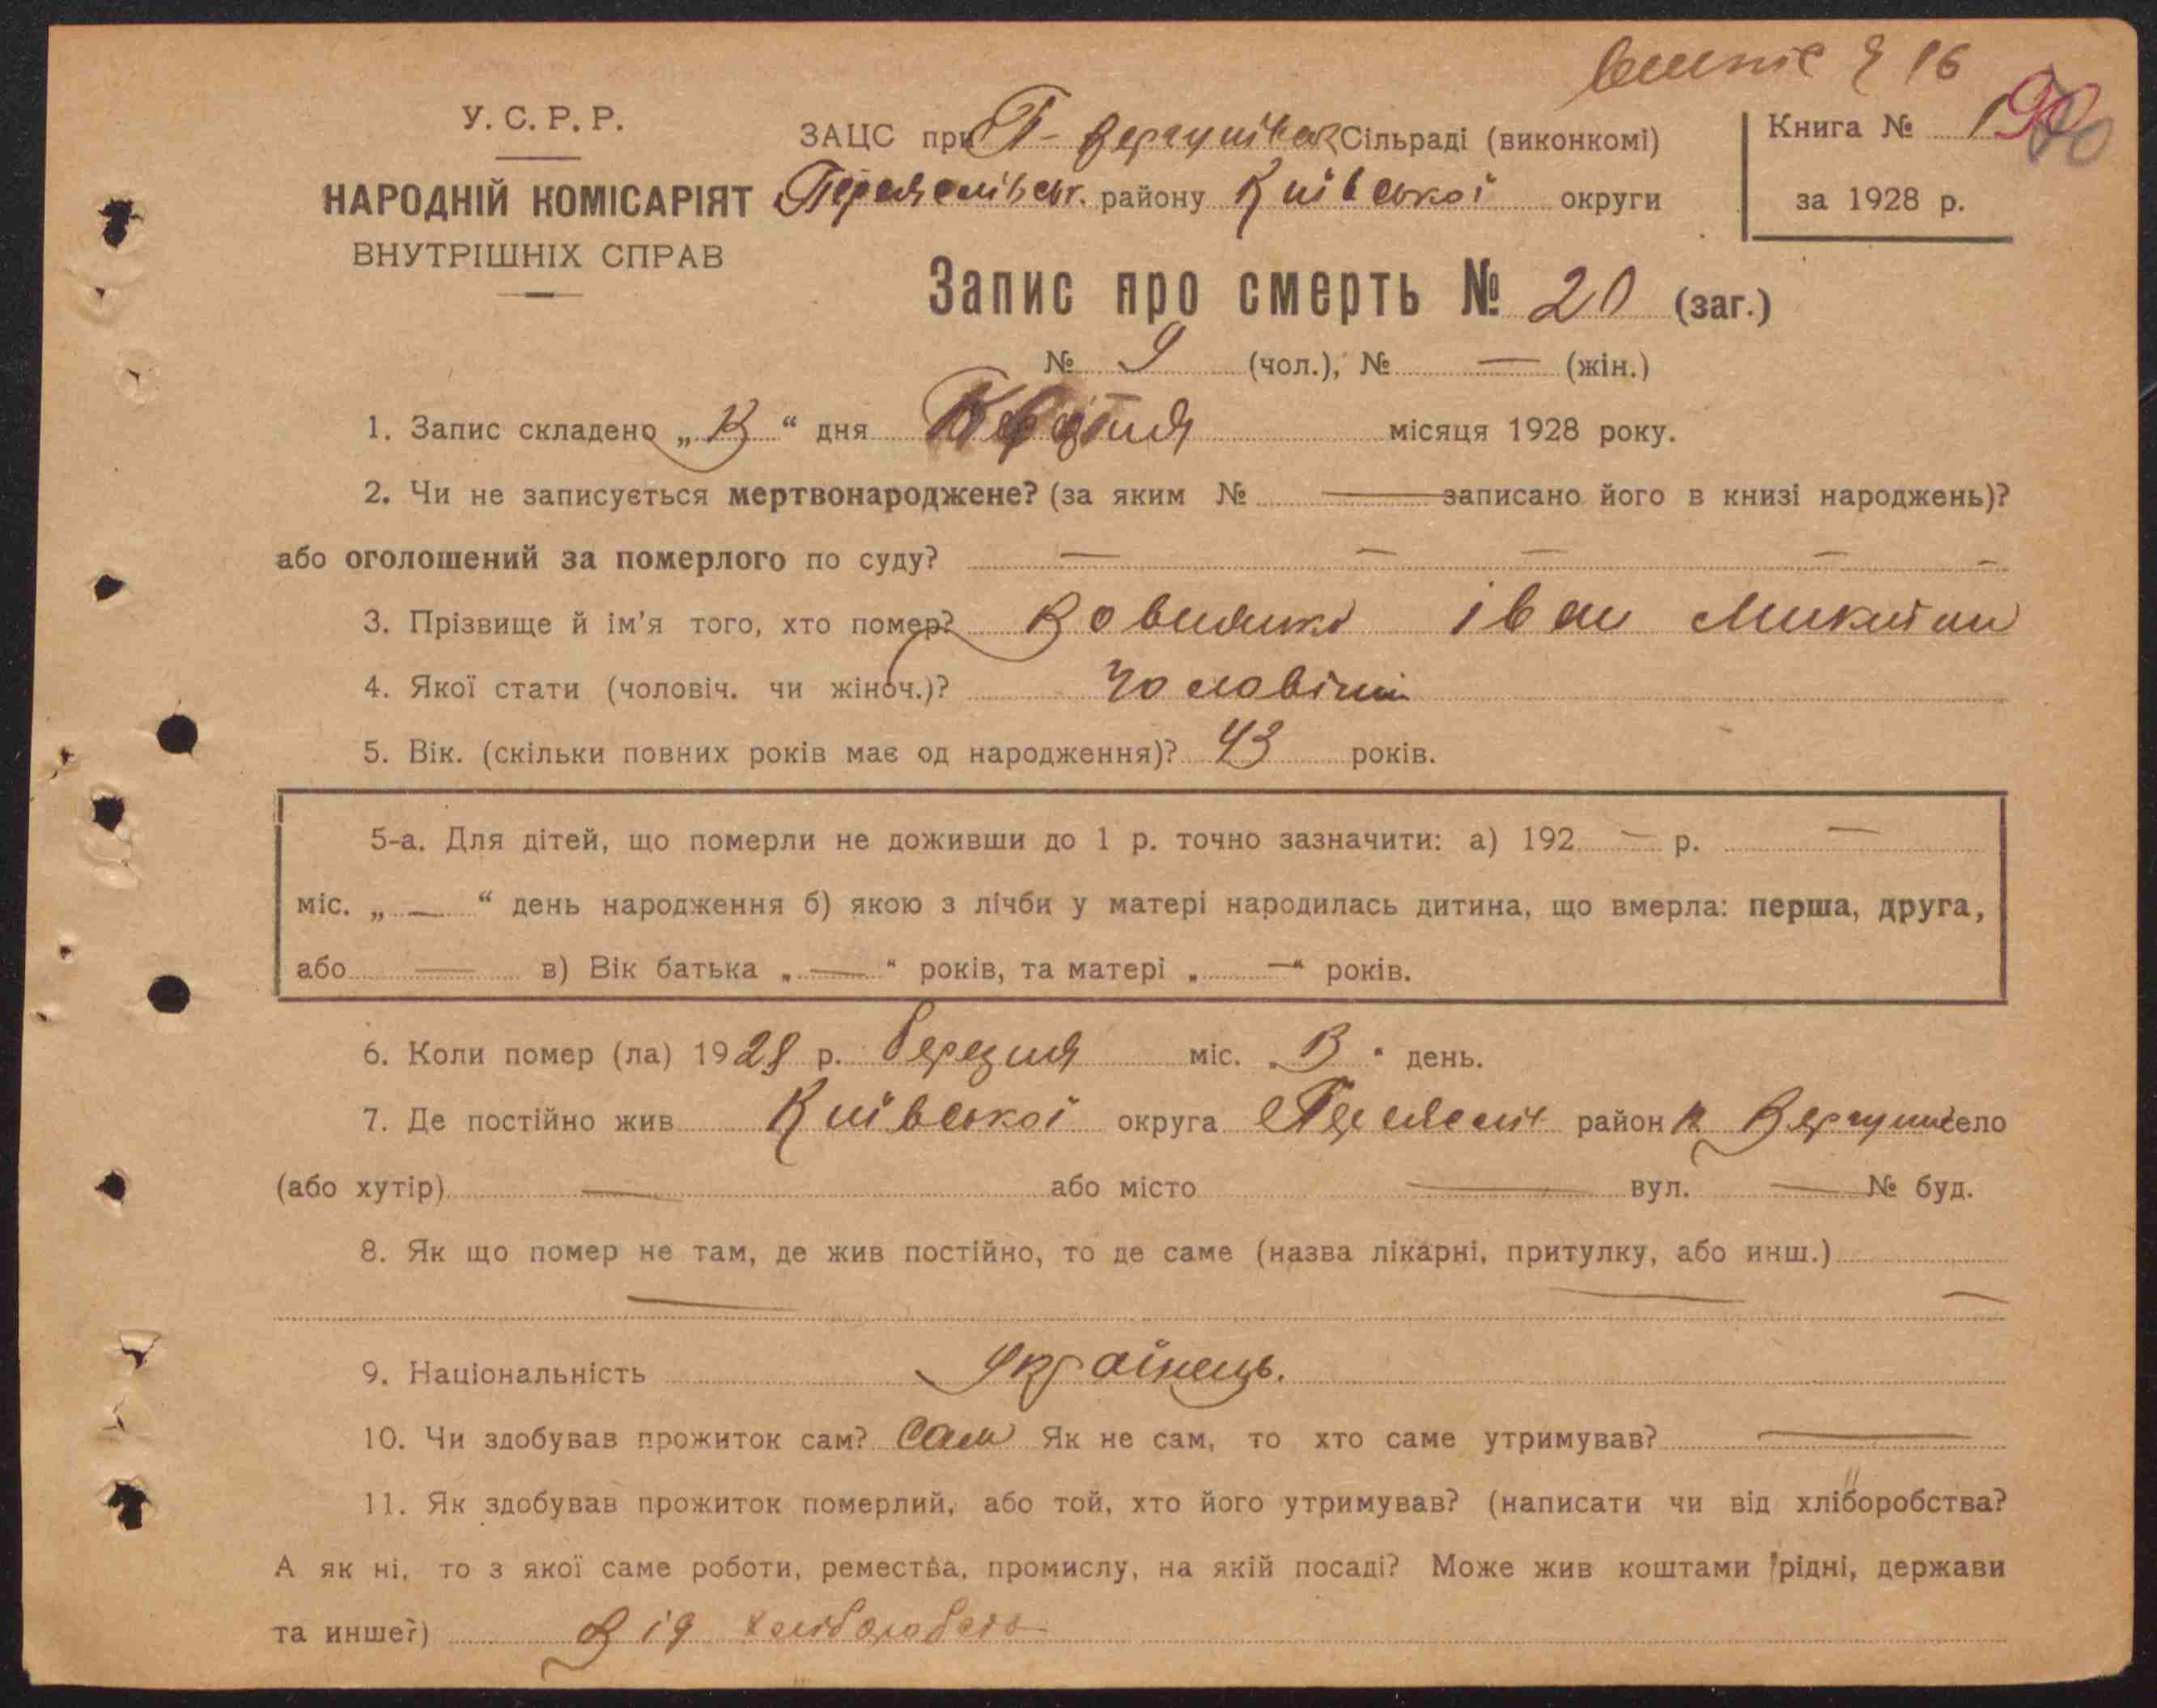 У. С. Р. Р.
НАРОДНІЙ КОМІСАРІЯТ
ВНУТРІШНІХ СПРАВ
16
ЗАЦС при Сільраді (виконкомі)
Переяславськ. району Київської округи
Книга №
за 1928 р.
Запис про смерть № 20 (заг.)
№ 9 (чол.), № — (жін.)
1. Запис складено „ “ дня місяця 1928 року.
2. Чи не записується мертвонароджене? (за яким № — записано його в книзі народжень)?
або оголошений за померлого по суду? — — — — —
3. Прізвище й ім'я того, хто помер? Іван Микитин
4. Якої стати (чоловіч. чи жіноч.)? Чоловічий
5. Вік. (скільки повних років має од народження)? 43 років.
5-а. Для дітей, що померли не доживши до 1 р. точно зазначити: а) 192 — р. —
міс. „ — “ день народження б) якою з лічби у матері народилась дитина, що вмерла: перша, друга,
або — в) Вік батька „ — “ років, та матері „ — “ років.
6. Коли помер (ла) 1928 р. березня міс. „ “ день.
7. Де постійно жив Київської округа район село
(або хутір) — або місто — вул. — № буд.
8. Як що помер не там, де жив постійно, то де саме (назва лікарні, притулку, або инш.)
— — —
9. Національність Українець.
10. Чи здобував прожиток сам? Сам Як не сам, то хто саме утримував? —
11. Як здобував прожиток померлий, або той, хто його утримував? (написати чи від хліборобства?
А як ні, то з якої саме роботи, ремества, промислу, на якій посаді? Може жив коштами рідні, держави
та инше?) Від